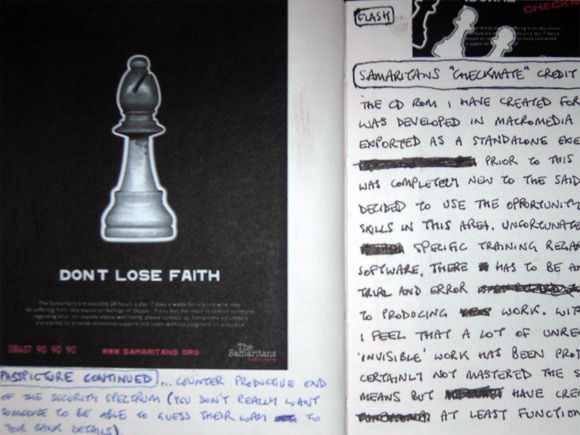 DON'T LOSE FAITH
The Samaritans are available 24 hours a day, 7 days a week for anyone who may
be suffering from depression or feelings of despair. If you feel the need to talk to someone
08457 90 90 90 WWW.SAMARITANS.ORG The Samaritans
PASSPICTURE CONTINUED)... COUNTER PRODUCTIVE END
OF THE SECURITY SPECTRUM (YOU DON'T REALLY WANT
SOMEONE TO BE ABLE TO GUESS THEIR WAY TO
YOUR BANK DETAILS)
CHECKM
FLASH
SAMARITANS "CHECKMATE" CREDIT
THE CD ROM I HAVE CREATED FOR
WAS DEVELOPED IN MACROMEDIA
EXPORTED AS A STANDALONE EXE
PRIOR TO THIS
WAS COMPLETELY NEW TO THE SAID
DECIDED TO USE THE OPPORTUNITY
SKILLS IN THIS AREA. UNFORTUNATE
SPECIFIC TRAINING REGA
SOFTWARE, THERE HAS TO BE A
TRIAL AND ERROR
TO PRODUCING WORK. WIT
I FEEL THAT A LOT OF UNRE
'INVISIBLE' WORK HAS BEEN PRO
CERTAINLY NOT MASTERED THE S
MEANS BUT HAVE CRE
AT LEAST FUNCTION